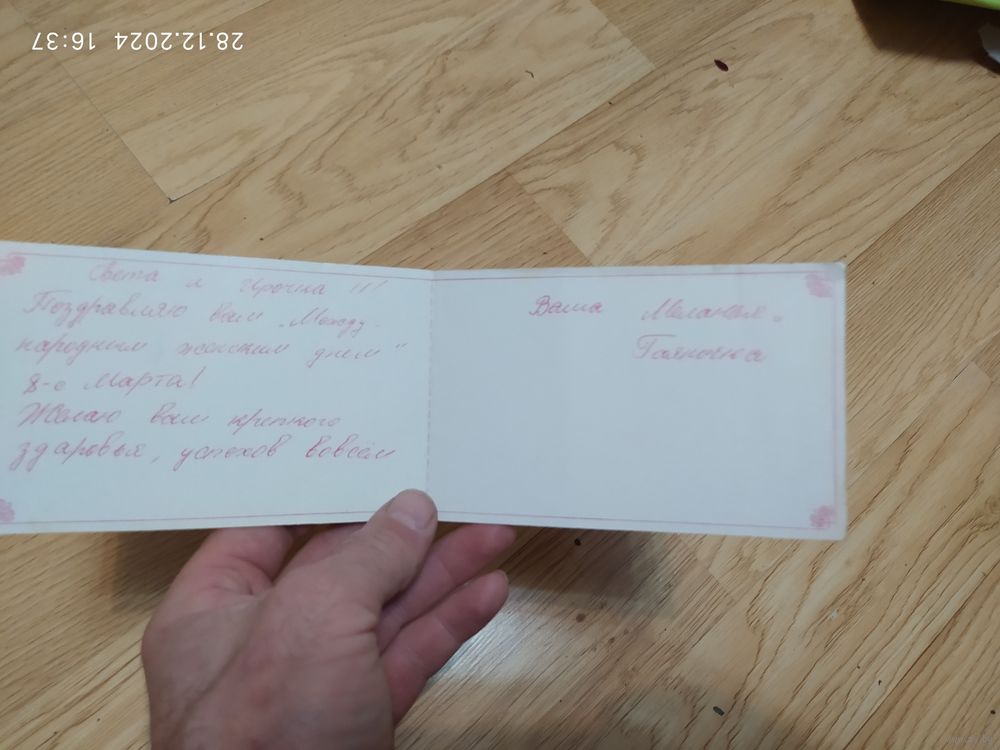 28.12.2024 16:37
Света и Ирочка !!!
Поздравляю вам „Между-
народным женским днем"
8-е Марта!
Желаю вам крепкого
здаровья, успехов вовсём
Ваша Меланья.